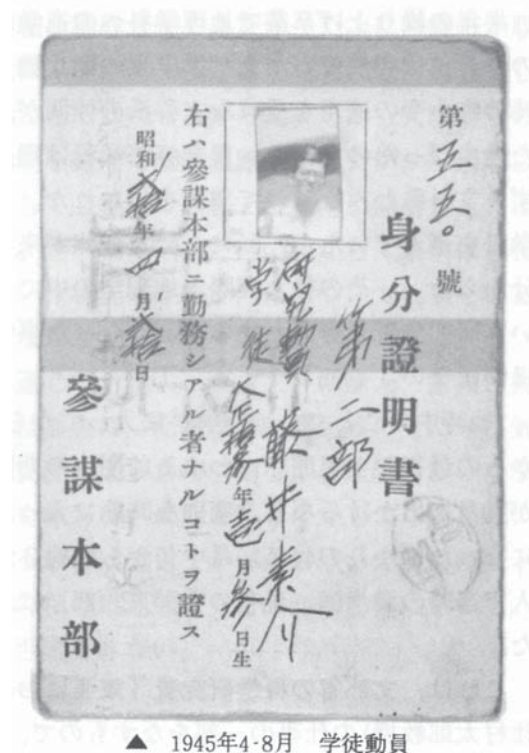 第五五〇號
身分證明書
第二部
研究動員
学徒
藤井素介
大正拾參年壱月參日生
右ハ參謀本部ニ勤務シアル者ナルコトヲ證ス
昭和貳拾年四月貳拾日
參謀本部
▲ 1945年4-8月 学徒動員